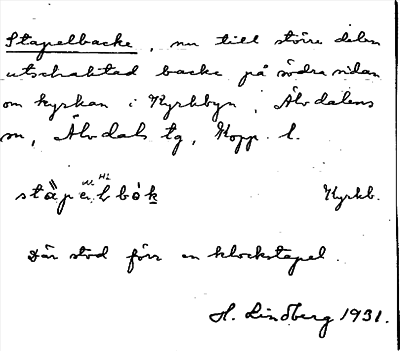 Stapelbacke, nu till större delen
utschaktad backe på södra sidan
om kyrkan i Kyrkbyn, Älvdalens
sn, Älvdals tg, Kopp. l.
Kyrkb.
Där stod förr en klockstapel.
H. Lindberg 1931.